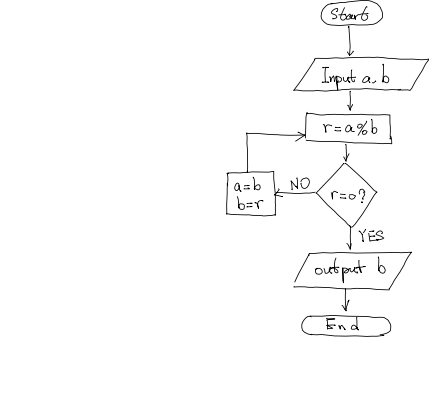 Start
Input a, b
r=a%b
r=0?
NO
a=b
b=r
YES
output b
End